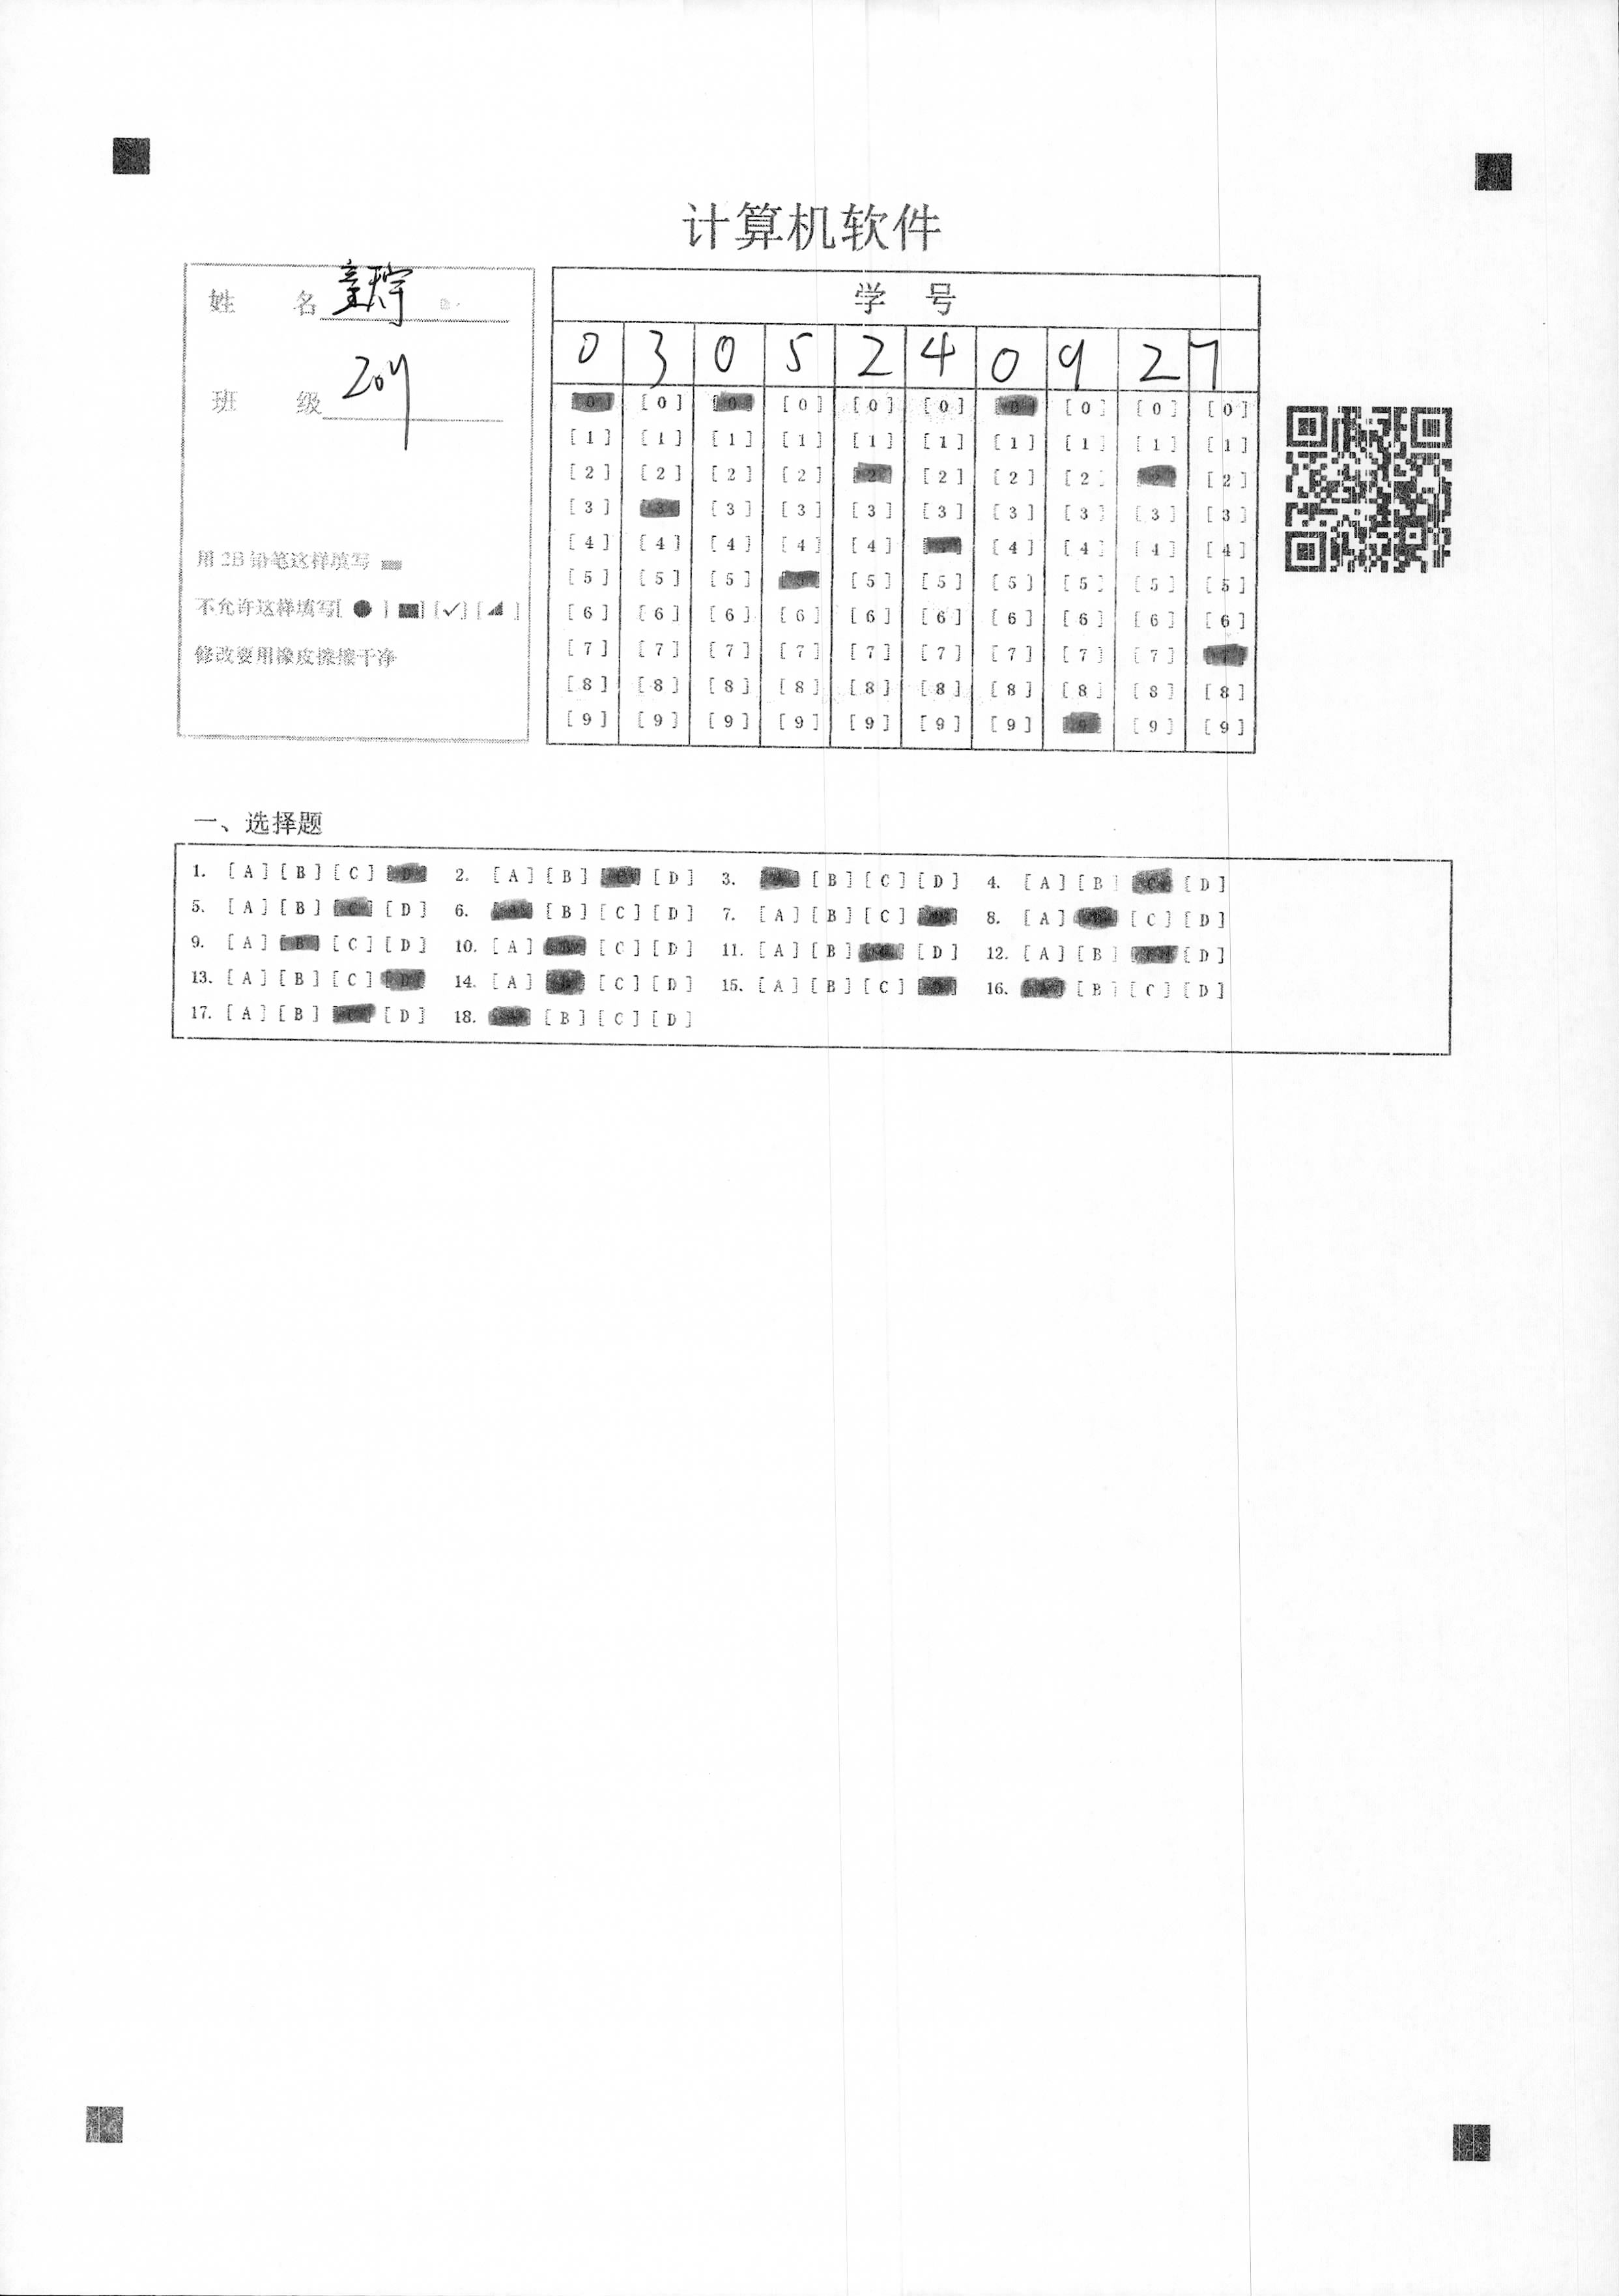 计算机软件
姓 名 童天宇
班 级 204
用2B铅笔这样填写
不允许这样填写[ ● ] [■] [✓] [◢ ]
修改要用橡皮擦擦干净
学 号
0 3 0 5 2 4 0 9 2 7
[0] [0] [0] [0] [0] [0] [0] [0] [0] [0]
[1] [1] [1] [1] [1] [1] [1] [1] [1] [1]
[2] [2] [2] [2] [2] [2] [2] [2] [2] [2]
[3] [3] [3] [3] [3] [3] [3] [3] [3] [3]
[4] [4] [4] [4] [4] [4] [4] [4] [4] [4]
[5] [5] [5] [5] [5] [5] [5] [5] [5] [5]
[6] [6] [6] [6] [6] [6] [6] [6] [6] [6]
[7] [7] [7] [7] [7] [7] [7] [7] [7] [7]
[8] [8] [8] [8] [8] [8] [8] [8] [8] [8]
[9] [9] [9] [9] [9] [9] [9] [9] [9] [9]
一、选择题
1. [A] [B] [C] [D] 2. [A] [B] [C] [D] 3. [A] [B] [C] [D] 4. [A] [B] [C] [D]
5. [A] [B] [C] [D] 6. [A] [B] [C] [D] 7. [A] [B] [C] [D] 8. [A] [B] [C] [D]
9. [A] [B] [C] [D] 10. [A] [B] [C] [D] 11. [A] [B] [C] [D] 12. [A] [B] [C] [D]
13. [A] [B] [C] [D] 14. [A] [B] [C] [D] 15. [A] [B] [C] [D] 16. [A] [B] [C] [D]
17. [A] [B] [C] [D] 18. [A] [B] [C] [D]